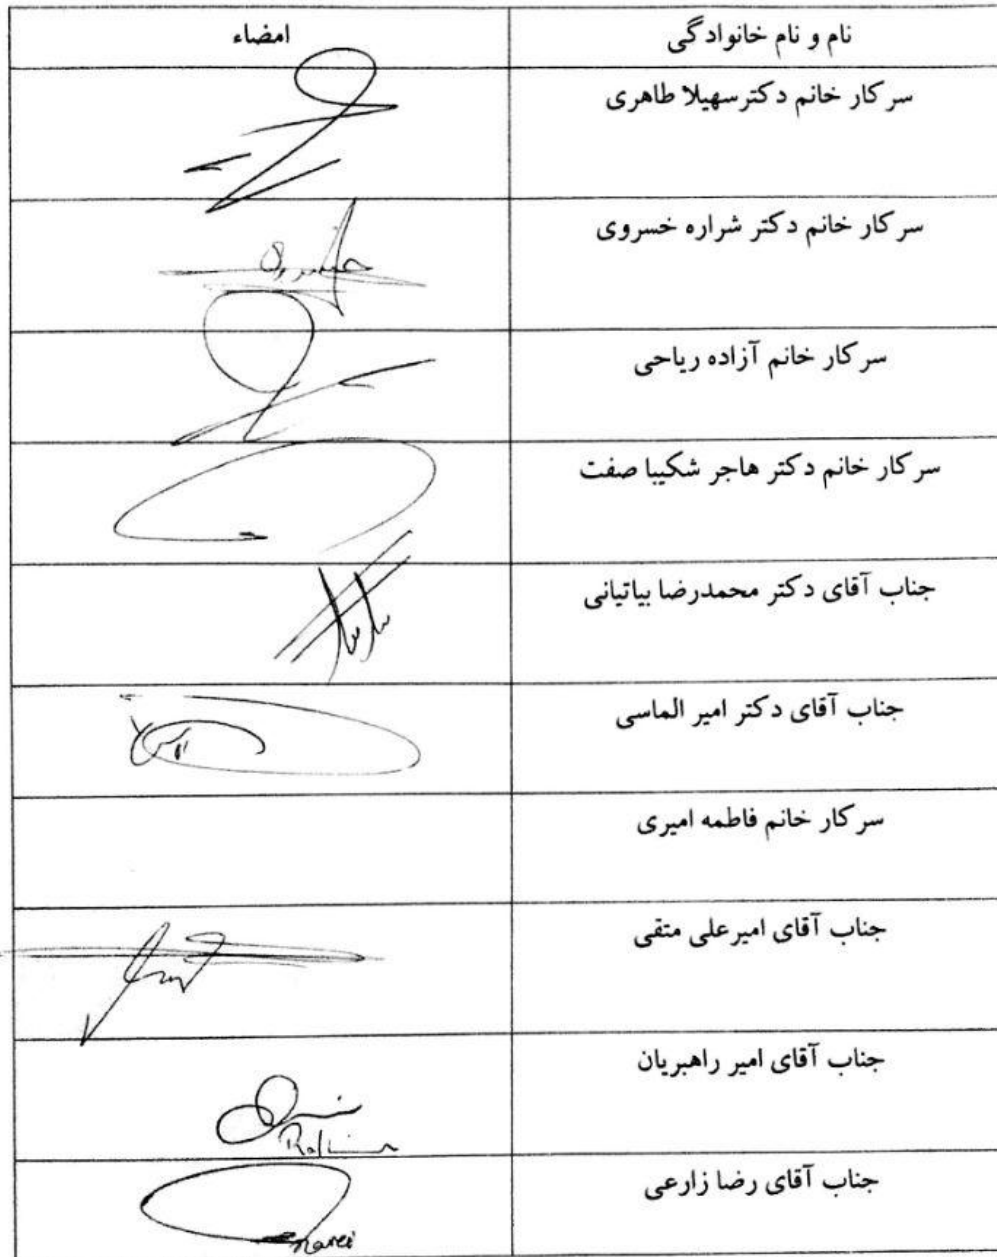 نام و نام خانوادگی
امضاء
سرکار خانم دکترسهیلا طاهری
سرکار خانم دکتر شراره خسروی
سرکار خانم آزاده ریاحی
سرکار خانم دکتر هاجر شکیبا صفت
جناب آقای دکتر محمدرضا بیاتیانی
جناب آقای دکتر امیر الماسی
سرکار خانم فاطمه امیری
جناب آقای امیرعلی متقی
جناب آقای امیر راهبریان
جناب آقای رضا زارعی
zarei